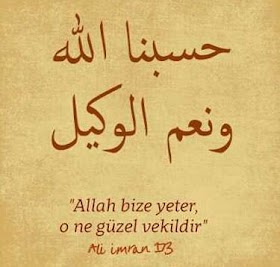 حسبنا الله
ونعم الوكيل
"Allah bize yeter,
o ne güzel vekildir"
Ali imran 173